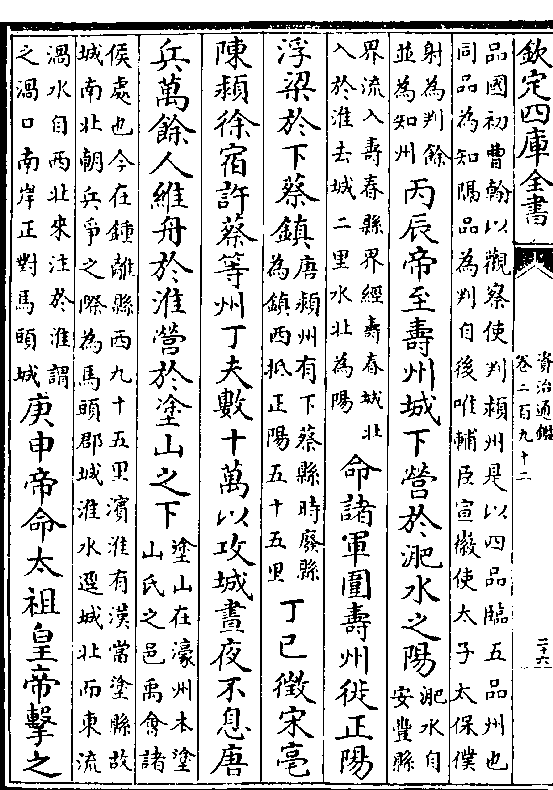 欽定四庫全書
資治通鑑
卷二百九十二
二十六
品國初曹翰以觀察使判潁州是以四品臨五品州也
同品為知隔品為判自後唯輔臣宣徽使太子太保僕
射為判餘
並為知州
丙辰帝至壽州城下營於淝水之陽
淝水自
安豐縣
界流入壽春縣界經壽春城北
入於淮去城二里水北為陽
命諸軍圍壽州徙正陽
浮梁於下蔡鎮
唐潁州有下蔡縣時廢縣
為鎮西抵正陽五十五里
丁巳徵宋亳
陳潁徐宿許蔡等州丁夫數十萬以攻城晝夜不息唐
兵萬餘人維舟於淮營於塗山之下
塗山在濠州本塗
山氏之邑禹會諸
侯處也今在鍾離縣西九十五里濱淮有漢當塗縣故
城南北朝兵爭之際為馬頭郡城淮水遶城北而東流
渦水自西北來注於淮謂
之渦口南岸正對馬頭城
庚申帝命太祖皇帝擊之